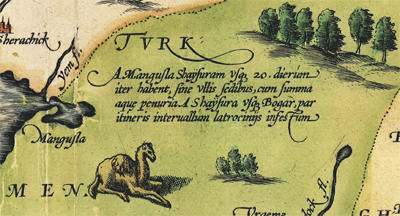 Sherachick
TVRK
Yem fl.
A Mangusla Shaysuram usq₃ 20. dierum
iter habent, sine ullis sedibus, cum summa
aquę penuria. A Shaysura usq₃ Bogar, par
itineris interuallum latrocinijs infestum
Mangusla
MEN.
fl.